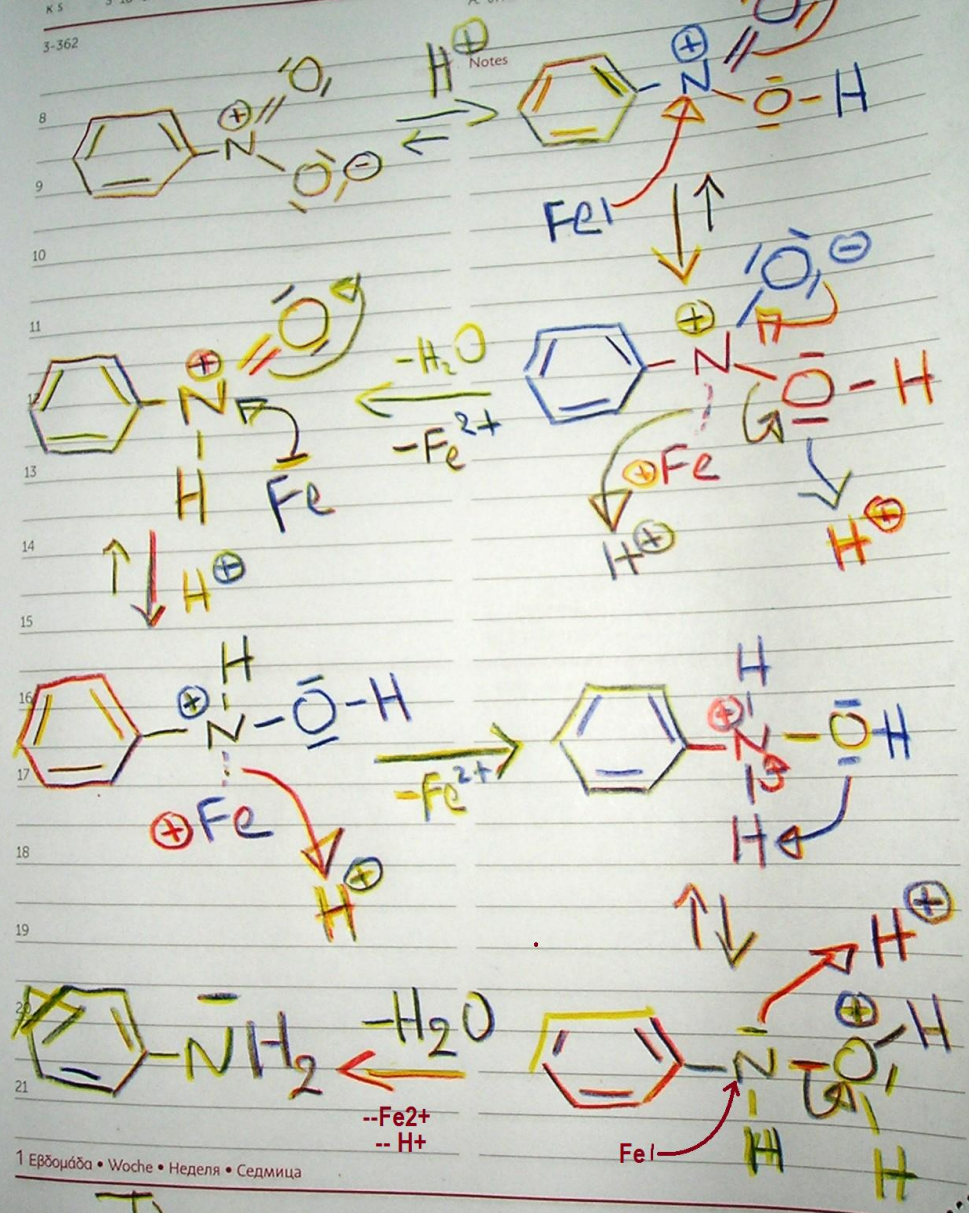 K S
3-362
Notes
8
9
10
11
12
13
14
15
16
17
18
19
20
21
H⊕
N⊕ O O⊖
N⊕ O O-H
Fe
N⊕ O⊖ O-H
⊕Fe
H⊕
H⊕
-H₂O
-Fe²⁺
N⊕ O
H Fe
H⊕
H
N⊕-O-H
⊕Fe
H⊕
-Fe²⁺
H
N⊕-OH
H
H⊕
N-O⊕ H
H H
Fe
-H2O
--Fe2+
-- H+
NH2
1 Εβδομάδα • Woche • Неделя • Седмица